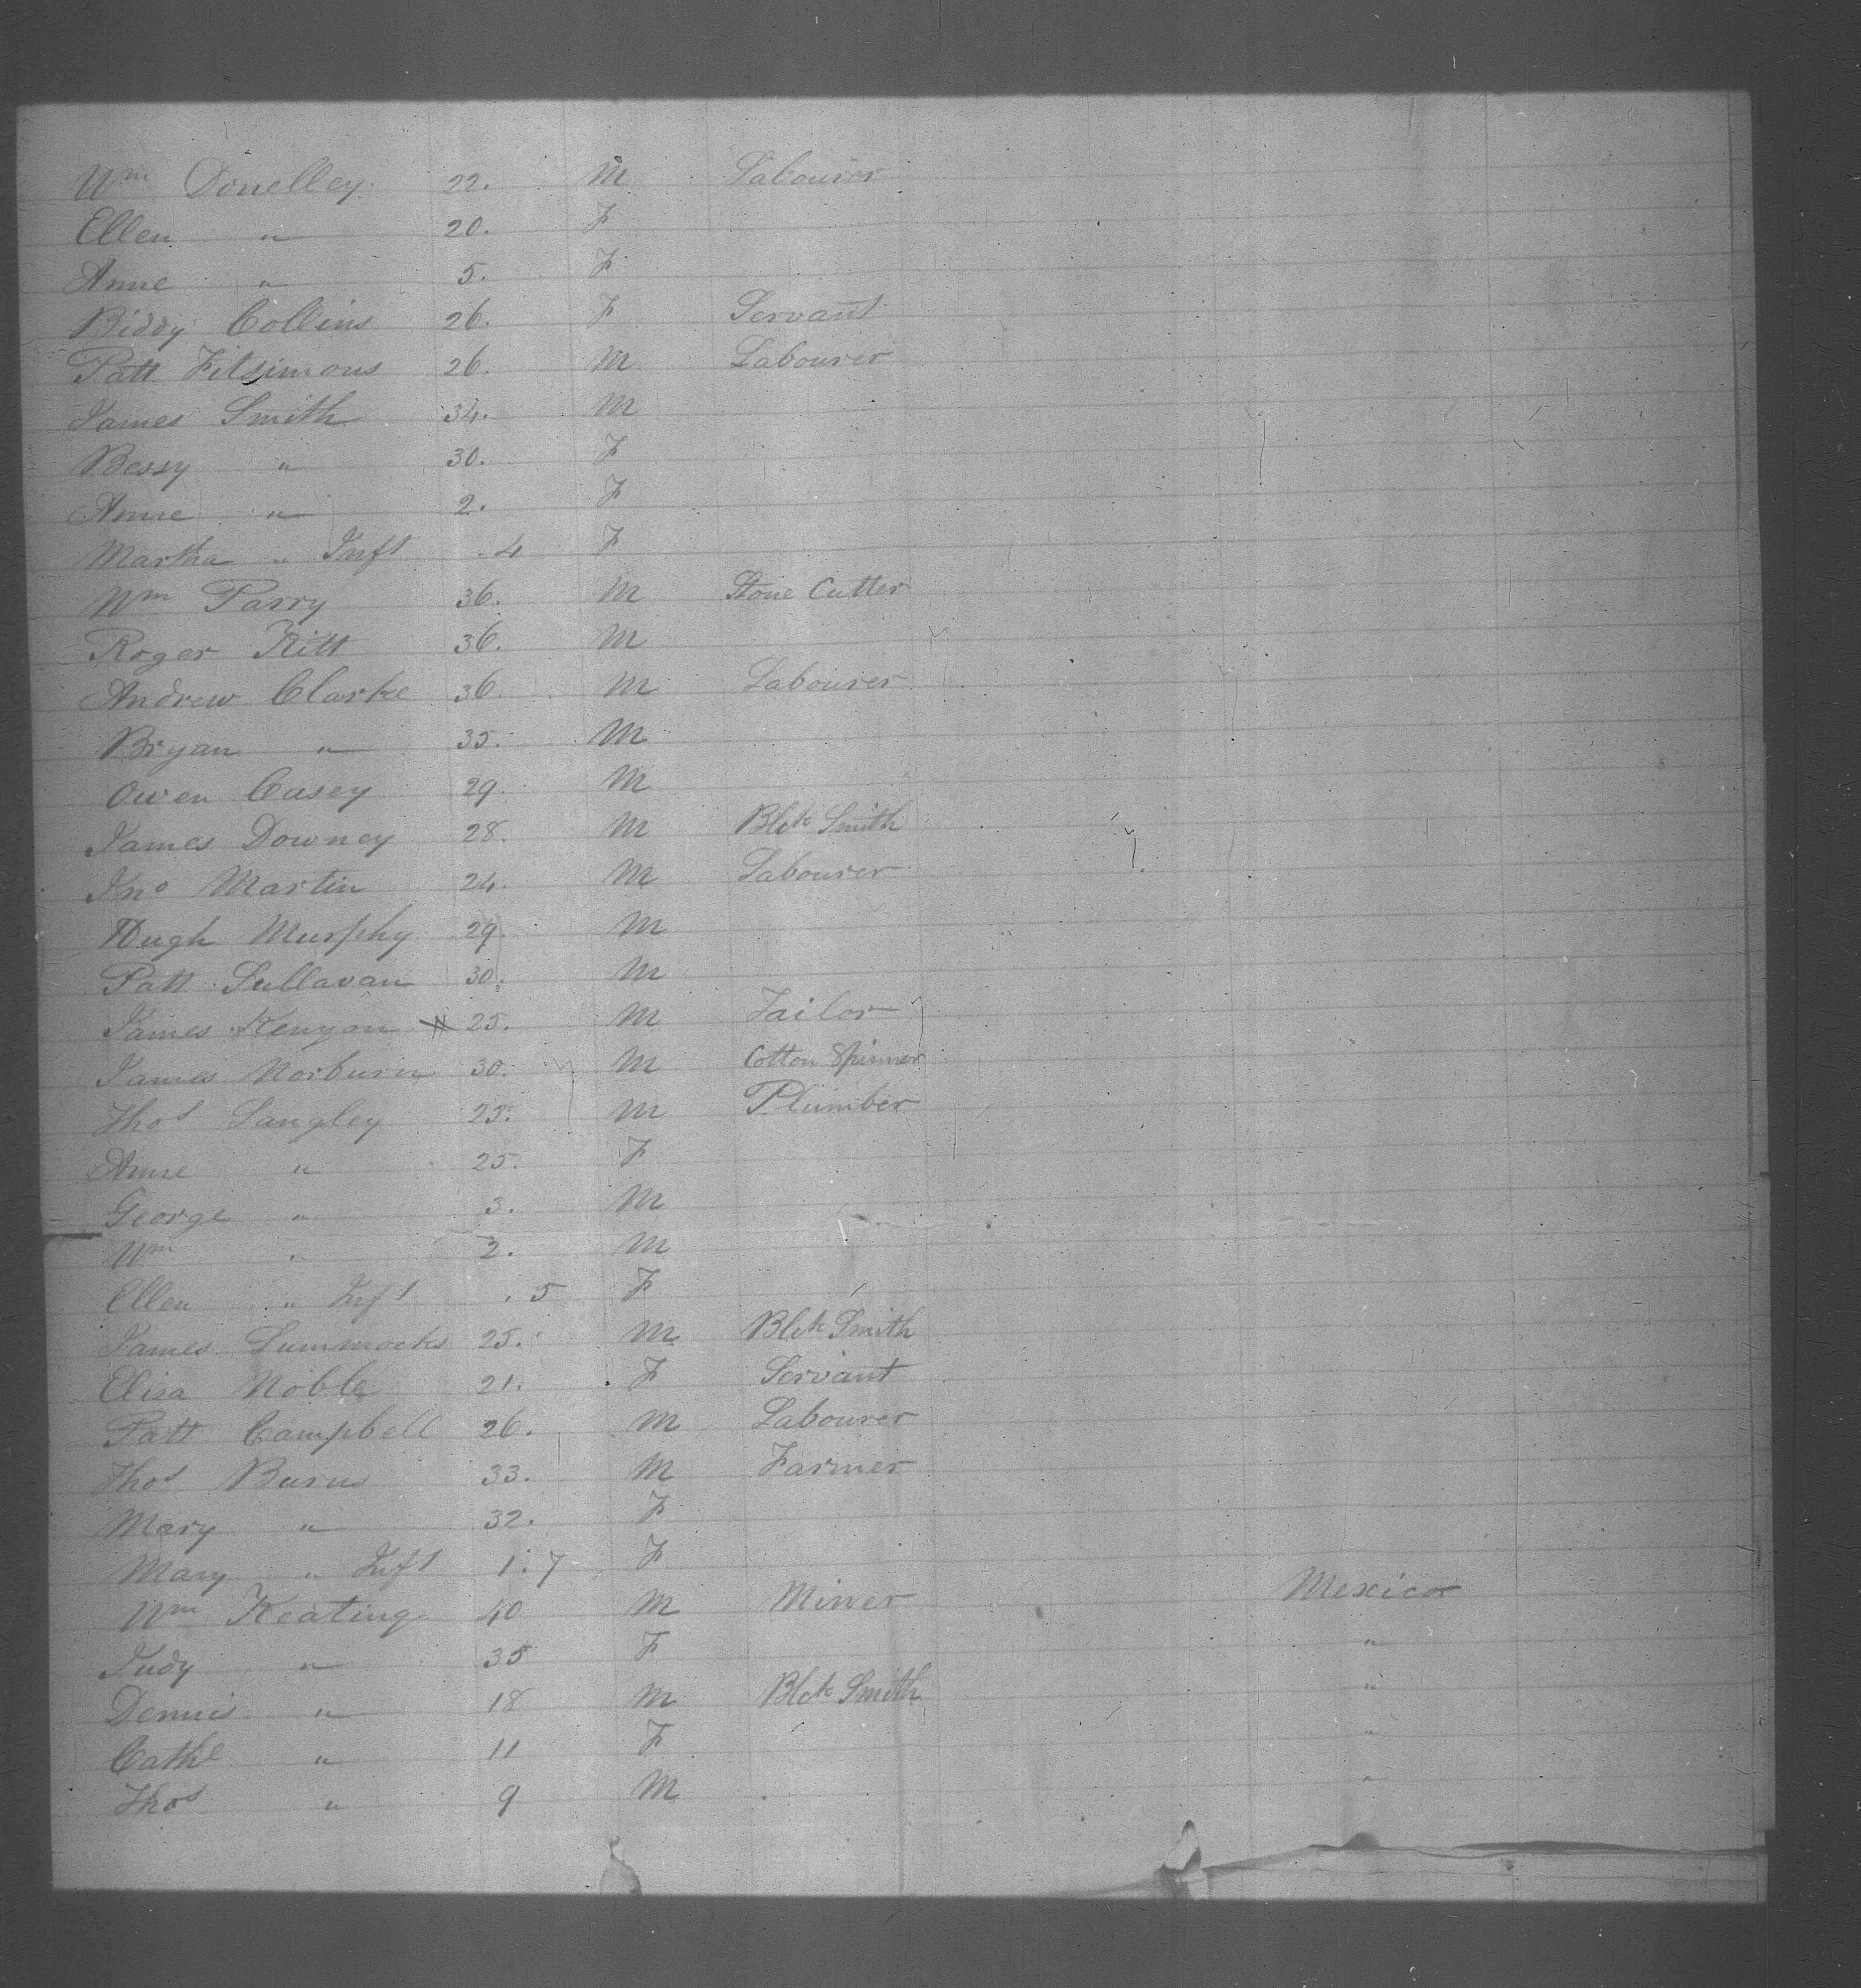 Wm Donelley 22. M Labourer
Ellen " 20. F
Anne " 5. F
Biddy Collins 26. F Servant
Patt Fitsimons 26. M Labourer
James Smith 34. M
Bessy " 30. F
Anne " 2. F
Martha " Inft .4 F
Wm Parry 36. M Stone Cutter
Roger Kitt 36. M
Andrew Clarke 36. M Labourer
Bryan " 35. M
Owen Casey 29. M
James Downey 28. M Blck Smith
Jno Martin 24. M Labourer
Hugh Murphy 29. M
Patt Sullavan 30. M
James Kenyon 25. M Tailor
James Norburn 30. M Cotton Spinner
Thos Langley 25. M Plumber
Anne " 25. F
George " 3. M
Wm " 2. M
Ellen " Inft .5 F
James Lummocks 25. M Blck Smith
Eliza Noble 21. F Servant
Patt Campbell 26. M Labourer
Thos Burns 33. M Farmer
Mary " 32. F
Mary " Inft 1.7 F
Wm Keating 40 M Miner Mexico
Judy " 35 F "
Dennis " 18 M Blck Smith "
Cathe " 11 F "
Thos " 9 M "